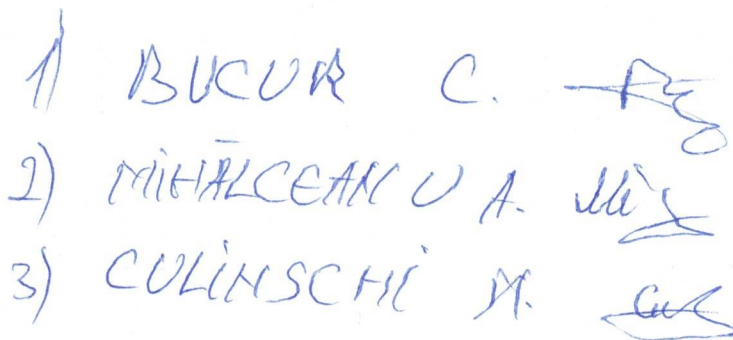 1) BUCUR C.
2) MIHĂLCEANU A.
3) CULINSCHI M.